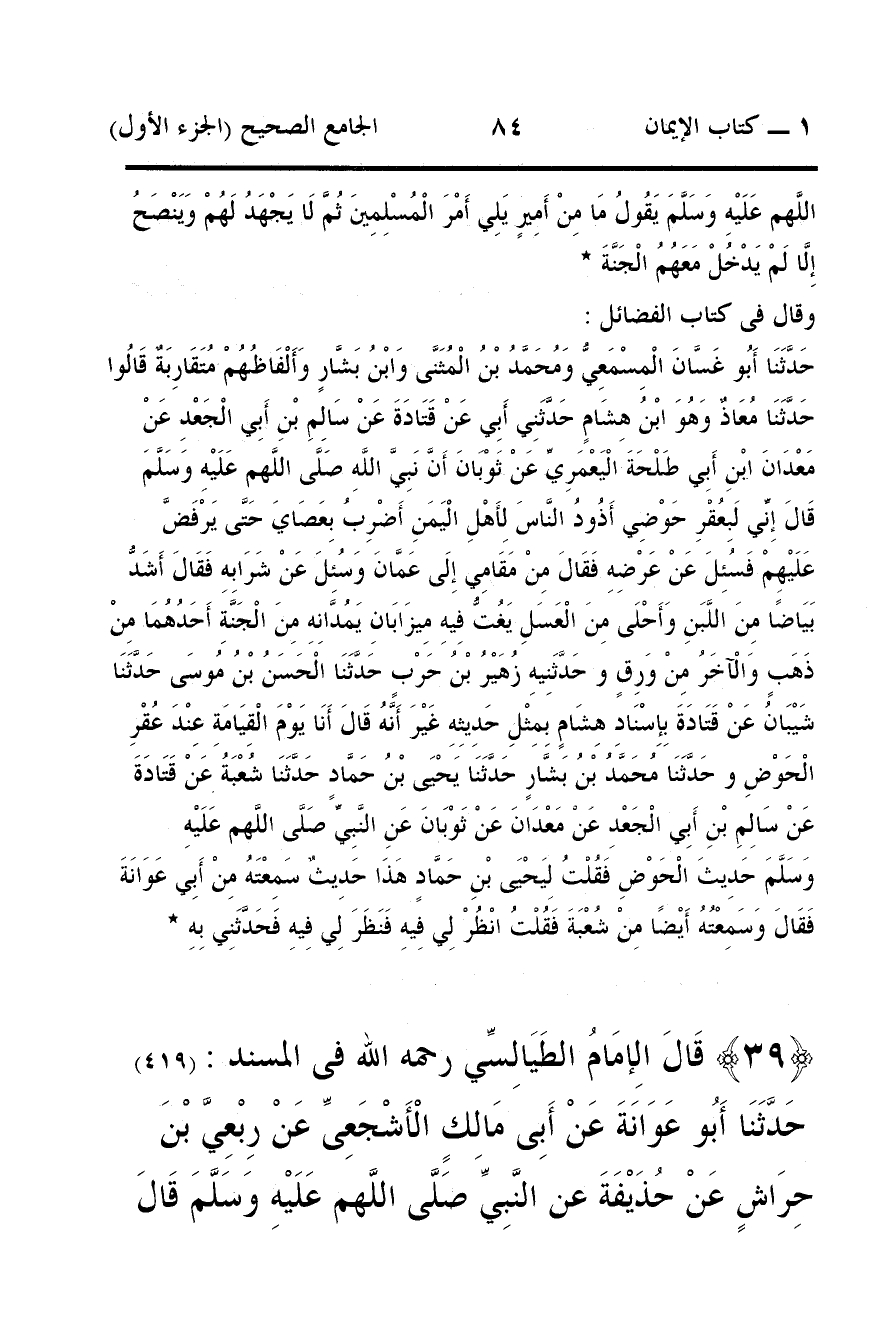 ١ ــ كتاب الإيمان ٨٤ الجامع الصحيح (الجزء الأول)
اللَّهم عَلَيْهِ وَسَلَّمَ يَقُولُ مَا مِنْ أَمِيرٍ يَلِي أَمْرَ الْمُسْلِمِينَ ثُمَّ لَا يَجْهَدُ لَهُمْ وَيَنْصَحُ
إِلَّا لَمْ يَدْخُلْ مَعَهُمُ الْجَنَّةَ *
وقال فى كتاب الفضائل :
حَدَّثَنَا أَبُو غَسَّانَ الْمِسْمَعِيُّ وَمُحَمَّدُ بْنُ الْمُثَنَّى وَابْنُ بَشَّارٍ وَأَلْفَاظُهُمْ مُتَقَارِبَةٌ قَالُوا
حَدَّثَنَا مُعَاذٌ وَهُوَ ابْنُ هِشَامٍ حَدَّثَنِي أَبِي عَنْ قَتَادَةَ عَنْ سَالِمِ بْنِ أَبِي الْجَعْدِ عَنْ
مَعْدَانَ ابْنِ أَبِي طَلْحَةَ الْيَعْمَرِيِّ عَنْ ثَوْبَانَ أَنَّ نَبِيَّ اللَّهِ صَلَّى اللَّهم عَلَيْهِ وَسَلَّمَ
قَالَ إِنِّي لَبِعُقْرِ حَوْضِي أَذُودُ النَّاسَ لِأَهْلِ الْيَمَنِ أَضْرِبُ بِعَصَايَ حَتَّى يَرْفَضَّ
عَلَيْهِمْ فَسُئِلَ عَنْ عَرْضِهِ فَقَالَ مِنْ مَقَامِي إِلَى عَمَّانَ وَسُئِلَ عَنْ شَرَابِهِ فَقَالَ أَشَدُّ
بَيَاضًا مِنَ اللَّبَنِ وَأَحْلَى مِنَ الْعَسَلِ يَغُتُّ فِيهِ مِيزَابَانِ يَمُدَّانِهِ مِنَ الْجَنَّةِ أَحَدُهُمَا مِنْ
ذَهَبٍ وَالْآخَرُ مِنْ وَرِقٍ و حَدَّثَنِيهِ زُهَيْرُ بْنُ حَرْبٍ حَدَّثَنَا الْحَسَنُ بْنُ مُوسَى حَدَّثَنَا
شَيْبَانُ عَنْ قَتَادَةَ بِإِسْنَادِ هِشَامٍ بِمِثْلِ حَدِيثِهِ غَيْرَ أَنَّهُ قَالَ أَنَا يَوْمَ الْقِيَامَةِ عِنْدَ عُقْرِ
الْحَوْضِ و حَدَّثَنَا مُحَمَّدُ بْنُ بَشَّارٍ حَدَّثَنَا يَحْيَى بْنُ حَمَّادٍ حَدَّثَنَا شُعْبَةُ عَنْ قَتَادَةَ
عَنْ سَالِمِ بْنِ أَبِي الْجَعْدِ عَنْ مَعْدَانَ عَنْ ثَوْبَانَ عَنِ النَّبِيِّ صَلَّى اللَّهم عَلَيْهِ
وَسَلَّمَ حَدِيثَ الْحَوْضِ فَقُلْتُ لِيَحْيَى بْنِ حَمَّادٍ هَذَا حَدِيثٌ سَمِعْتَهُ مِنْ أَبِي عَوَانَةَ
فَقَالَ وَسَمِعْتُهُ أَيْضًا مِنْ شُعْبَةَ فَقُلْتُ انْظُرْ لِي فِيهِ فَنَظَرَ لِي فِيهِ فَحَدَّثَنِي بِهِ *
﴿٣٩﴾ قَالَ الإِمَامُ الطَيَالِسِّي رحمه الله فى المسند : (٤١٩)
حَدَّثَنَا أَبُو عَوَانَةَ عَنْ أَبِى مَالِكٍ الْأَشْجَعِىِّ عَنْ رِبْعِيَّ بْنَ
حِرَاشٍ عَنْ حُذَيْفَةَ عن النَّبِيِّ صَلَّى اللَّهم عَلَيْهِ وَسَلَّمَ قَالَ